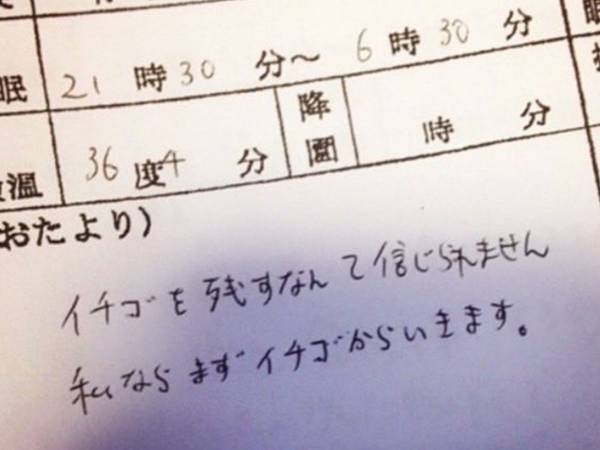 眠 21 時 30 分～ 6 時 30 分
温 36 度4 分 降園 時 分
おたより）
イチゴを残すなんて信じられません
私ならまずイチゴからいきます。